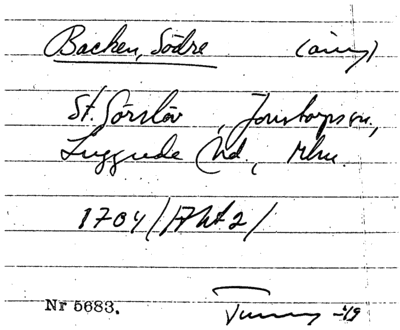 Backen, Södre (äng)
St. Görslöv, Jonstorps sn,
Luggude hd, Mhu.
1704/Akt 2/
Nr 5683.
-49